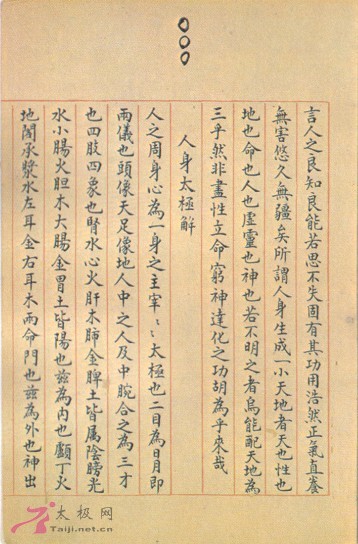 言人之良知良能若思不失固有其功用浩然正氣直養
無害悠久無疆矣所謂人身生成一小天地者天也性也
地也命也人也虛靈也神也若不明之者烏能配天地為
三乎然非盡性立命窮神達化之功胡為乎來哉
人身太極解
人之周身心為一身之主宰〻〻太極也二目為日月即
兩儀也頭像天足像地人中之人及中腕合之為三才
也四肢四象也腎水心火肝木肺金脾土皆属陰膀光
水小腸火胆木大腸金胃土皆陽也茲為内也顱丁火
地閣承漿水左耳金右耳木兩命門也茲為外也神出
太极网
Taiji.net.cn